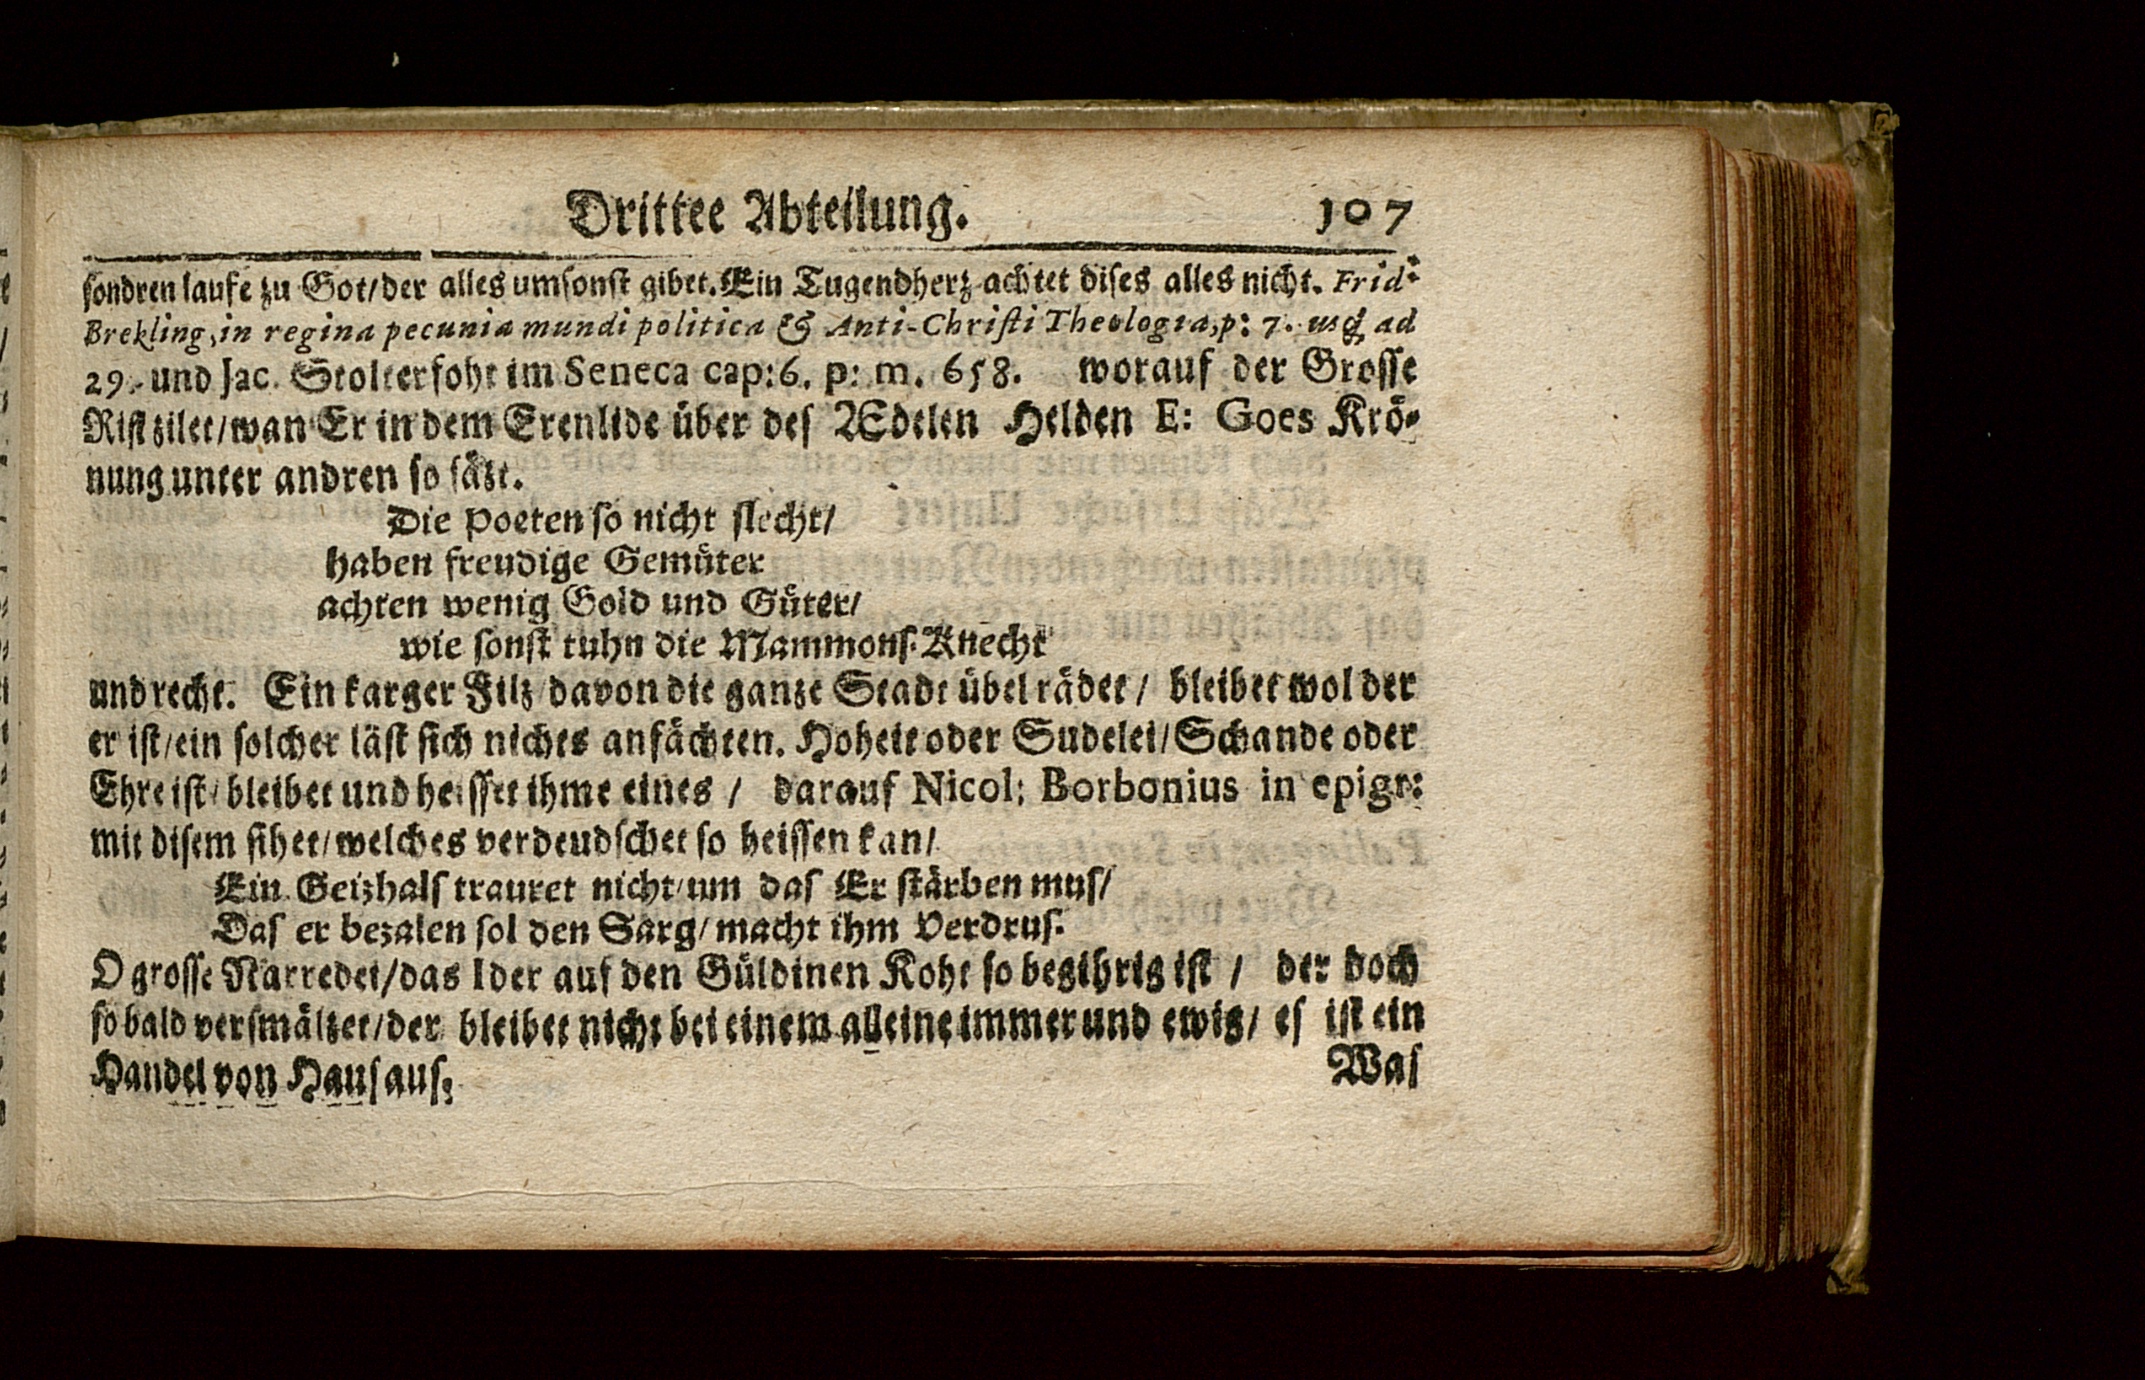 Drittee Abteilung. 107
sondren laufe zu Got/der alles umsonst gibet. Ein Tugendhertz achtet dises alles nicht. Frid:
Brekling, in regina pecunia mundi politica & Anti-Christi Theologia, p: 7. usq; ad
29. und Jac. Stolterfoht im Seneca cap: 6. p: m. 658. worauf der Grosse
Rist zilet/wan Er in dem Erenlide über des Ædelen Helden E: Goes Krö-
nung unter andren so säzt.
Die Poeten so nicht slecht/
haben freudige Gemüter
achten wenig Gold und Güter/
wie sonst tuhn die Mammons-Knecht
und recht. Ein karger Filz davon die ganze Stadt übel rädet / bleibet wol der
er ist/ein solcher läst sich nichts anfächten. Hoheit oder Sudelei/Schande oder
Ehre ist/bleibet und heisset ihme eines / darauf Nicol: Borbonius in epigr:
mit disem sihet/welches verdeudschet so heissen kan/
Ein Geizhals trauret nicht/um das Er stärben mus/
Das er bezalen sol den Sarg/macht ihm Verdrus.
O grosse Narredei/das Ider auf den Güldinen Koht so begihrig ist / der doch
so bald versmältzet/der bleibet nicht bei einem alleine immer und ewig/ es ist ein
Handel von Haus aus;
Was